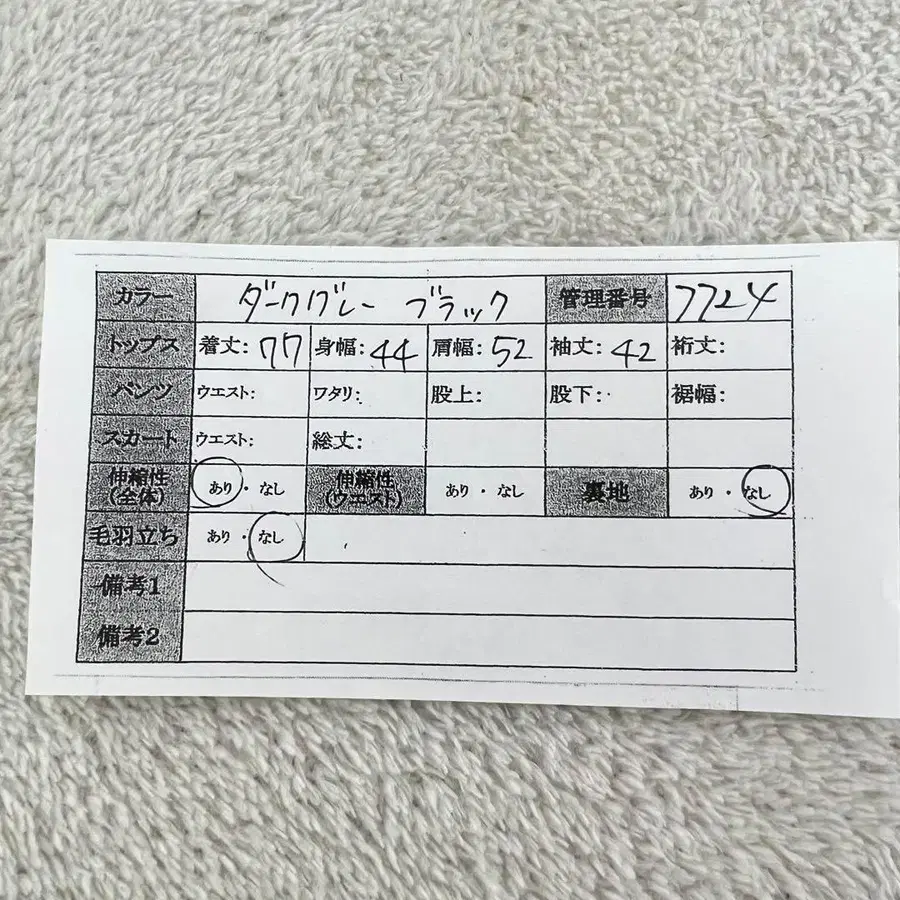 カラー ダークグレー ブラック 管理番号 7724
トップス 着丈: 77 身幅: 44 肩幅: 52 袖丈: 42 裄丈:
パンツ ウエスト: ワタリ: 股上: 股下: 裾幅:
スカート ウエスト: 総丈:
伸縮性(全体) あり・なし 伸縮性(ウエスト) あり・なし 裏地 あり・なし
毛羽立ち あり・なし
備考1
備考2